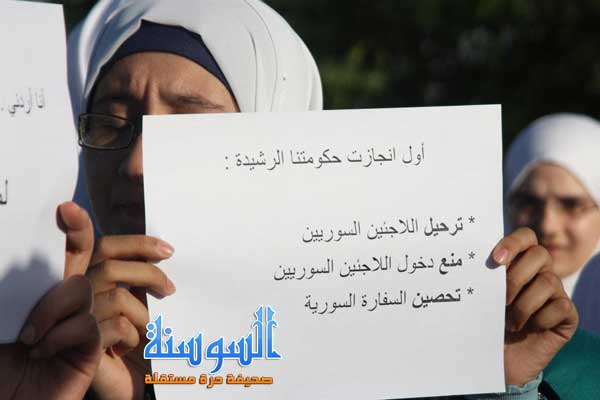 أول انجازت حكومتنا الرشيدة :
* ترحيل اللاجئين السوريين
* منع دخول اللاجئين السوريين
* تحصين السفارة السورية
أنا أردني .
السوسنة
صحيفة حرة مستقلة